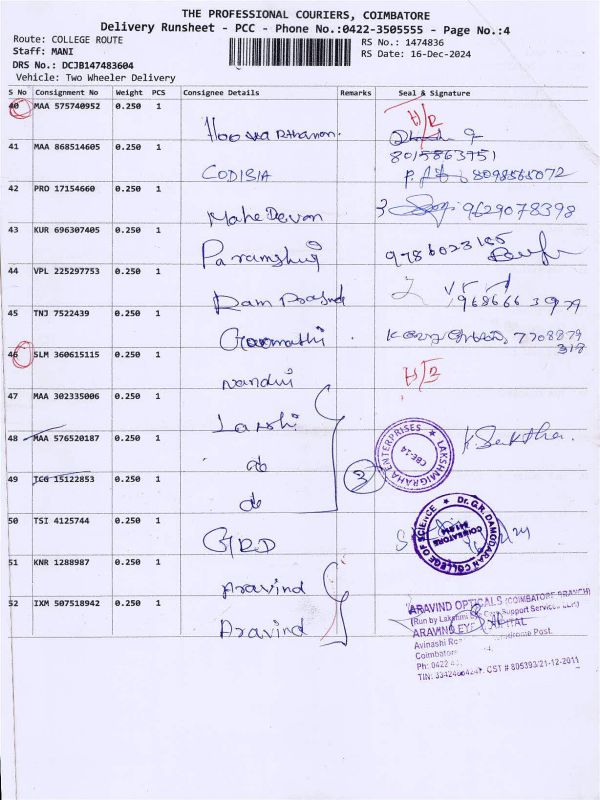 THE PROFESSIONAL COURIERS, COIMBATORE
Delivery Runsheet - PCC - Phone No.:0422-3505555 - Page No.:4
Route: COLLEGE ROUTE
RS No.: 1474836
Staff: MANI
RS Date: 16-Dec-2024
DRS No.: DCJB147483604
Vehicle: Two Wheeler Delivery
S No Consignment No Weight PCS Consignee Details Remarks Seal & Signature
40 MAA 575740952 0.250 1
8015863751
41 MAA 868514605 0.250 1 CODISIA 8098565072
42 PRO 17154660 0.250 1 Mahe Devan 9629078398
43 KUR 696307405 0.250 1
44 VPL 225297753 0.250 1 Ram Prasad
45 TNJ 7522439 0.250 1 Goomathi 7708879
318
46 SLM 360615115 0.250 1 nandhi
47 MAA 302335006 0.250 1 Lakshi
48 MAA 576520187 0.250 1 do 3 LAKSHMIGRAHA ENTERPRISES CBE-14 K. Saktha.
49 TCG 15122853 0.250 1 do
50 TSI 4125744 0.250 1 GRD Dr. G.R. DAMODARAN COLLEGE OF SCIENCE COIMBATORE 641 014
51 KNR 1288987 0.250 1 Aravind
52 IXM 507518942 0.250 1 Aravind
ARAVIND OPTICALS (COIMBATORE BRANCH)
(Run by Lakshmi Eye Care Support Services LLP)
ARAVIND EYE HOSPITAL
Avinashi Post,
Coimbatore
Ph: 0422
CST # 805393/21-12-2011